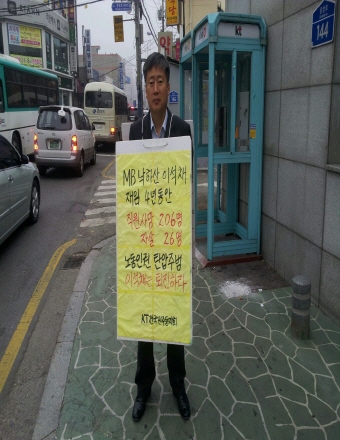 kt
144
MB 낙하산 이석채
재임 4년동안
직원사망 206명
자살 26명
노동인권 탄압주범
이석채는 퇴진하라